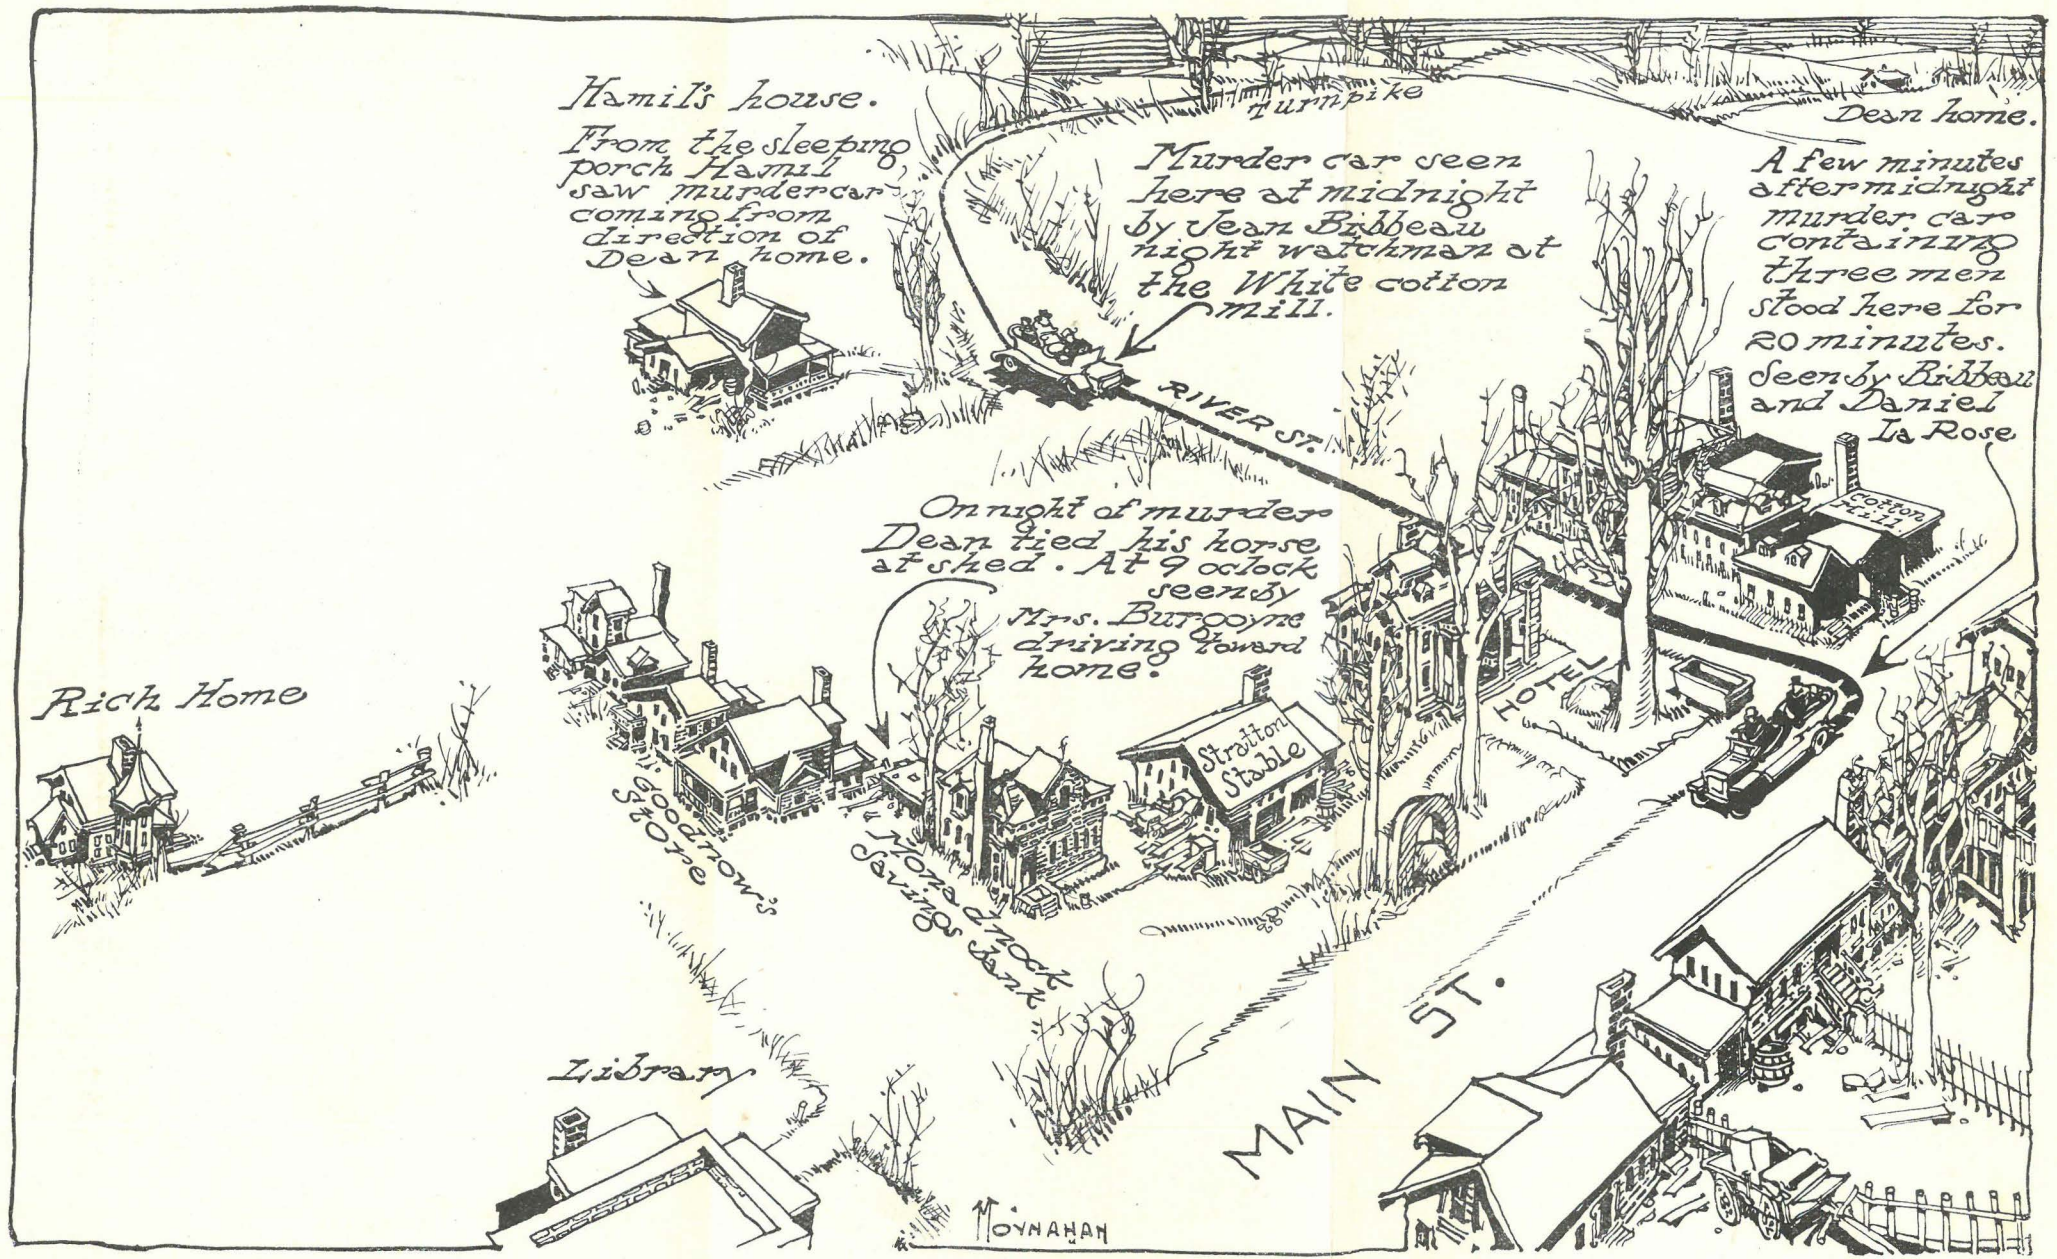 Hamil's house.
From the sleeping
porch Hamil
saw murder car
coming from
direction of
Dean home.
Turnpike
Murder car seen
here at midnight
by Jean Bibbeau
night watchman at
the White cotton
mill.
Dean home.
A few minutes
after midnight
murder car
containing
three men
stood here for
20 minutes.
Seen by Bibbeau
and Daniel
La Rose
RIVER ST.
Cotton
Mill.
On night of murder
Dean tied his horse
at shed. At 9 oclock
seen by
Mrs. Burgoyne
driving toward
home.
Rich Home
Goodnow's
Store
Monadnock
Savings bank
Stratton
Stable
HOTEL
Library
MAIN ST.
MOYNAHAN